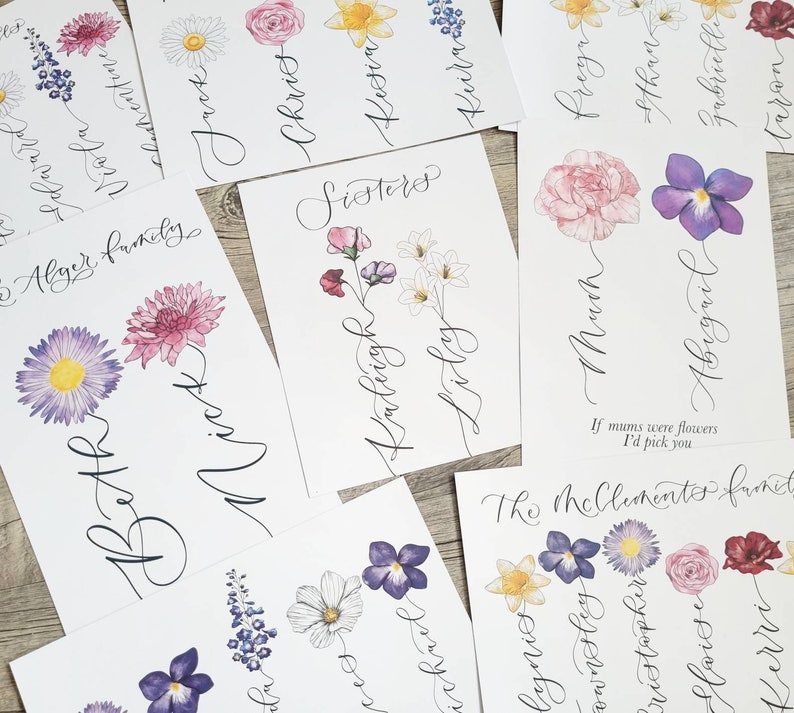 Edward
Viola
Jack
Chris
Kesia
Keira
Freya
Ethan
Gabrielle
The Alger family
Beth
Nick
Sisters
Kaleigh
Lily
Mum
Abigail
If mums were flowers
I'd pick you
The McClements family
Townsley
Christopher
Eloise
Kerri
Michael